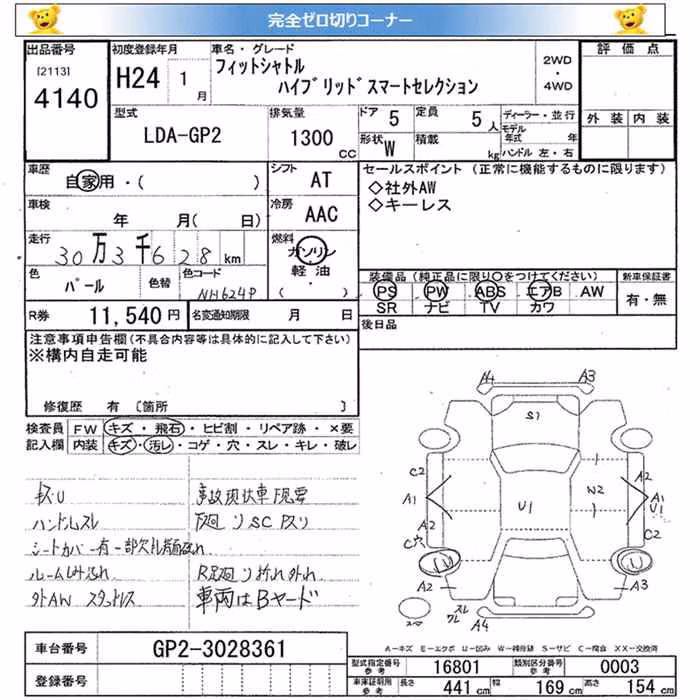 完全ゼロ切りコーナー
出品番号 初度登録年月 車名・グレード 評価点
[2113] H24 1月 フィットシャトル 2WD・4WD
4140 ハイブリッドスマートセレクション
型式 排気量 ドア 5 定員 5人 ディーラー・並行 外装 内装
LDA-GP2 1300cc 形状 W 積載 kg モデル年式 年
ハンドル 左・右
車歴 自家用・( ) シフト AT セールスポイント (正常に機能するものに限ります)
◇社外AW
車検 年 月( 日) 冷房 AAC ◇キーレス
走行 30万3千628km 燃料 ガソリン
軽油・( )
色 パール 色替 色コード NH624P 装備品(純正品に限り○をつけてください) 新車保証書
PS PW ABS エアB AW 有・無
SR ナビ TV カワ
R券 11,540円 名変通知期限 月 日 後日品
注意事項申告欄(不具合内容等は具体的に記入して下さい)
※構内自走可能
修復歴 有〔箇所 〕
検査員 FW キズ・飛石・ヒビ割・リペア跡・×要
記入欄 内装 キズ・汚レ・コゲ・穴・スレ・キレ・破レ
事故現状車
ハンドルスレ 下廻りSC
シートカバー有
外AW スタットレス 車両はBヤード
A4 A3
S1
C2 A2
A1 U1 W2 A1
U1
A2 C2
C穴
U U
A2 A3
スレ
ワレ A4
A-キズ E-エクボ U-凹み W-補修跡 S-サビ C-腐食 XX-交換済
車台番号 GP2-3028361
登録番号
型式指定番号 参考 16801 類別区分番号 参考 0003
車庫証明用 参考 長さ 441cm 幅 169cm 高さ 154cm